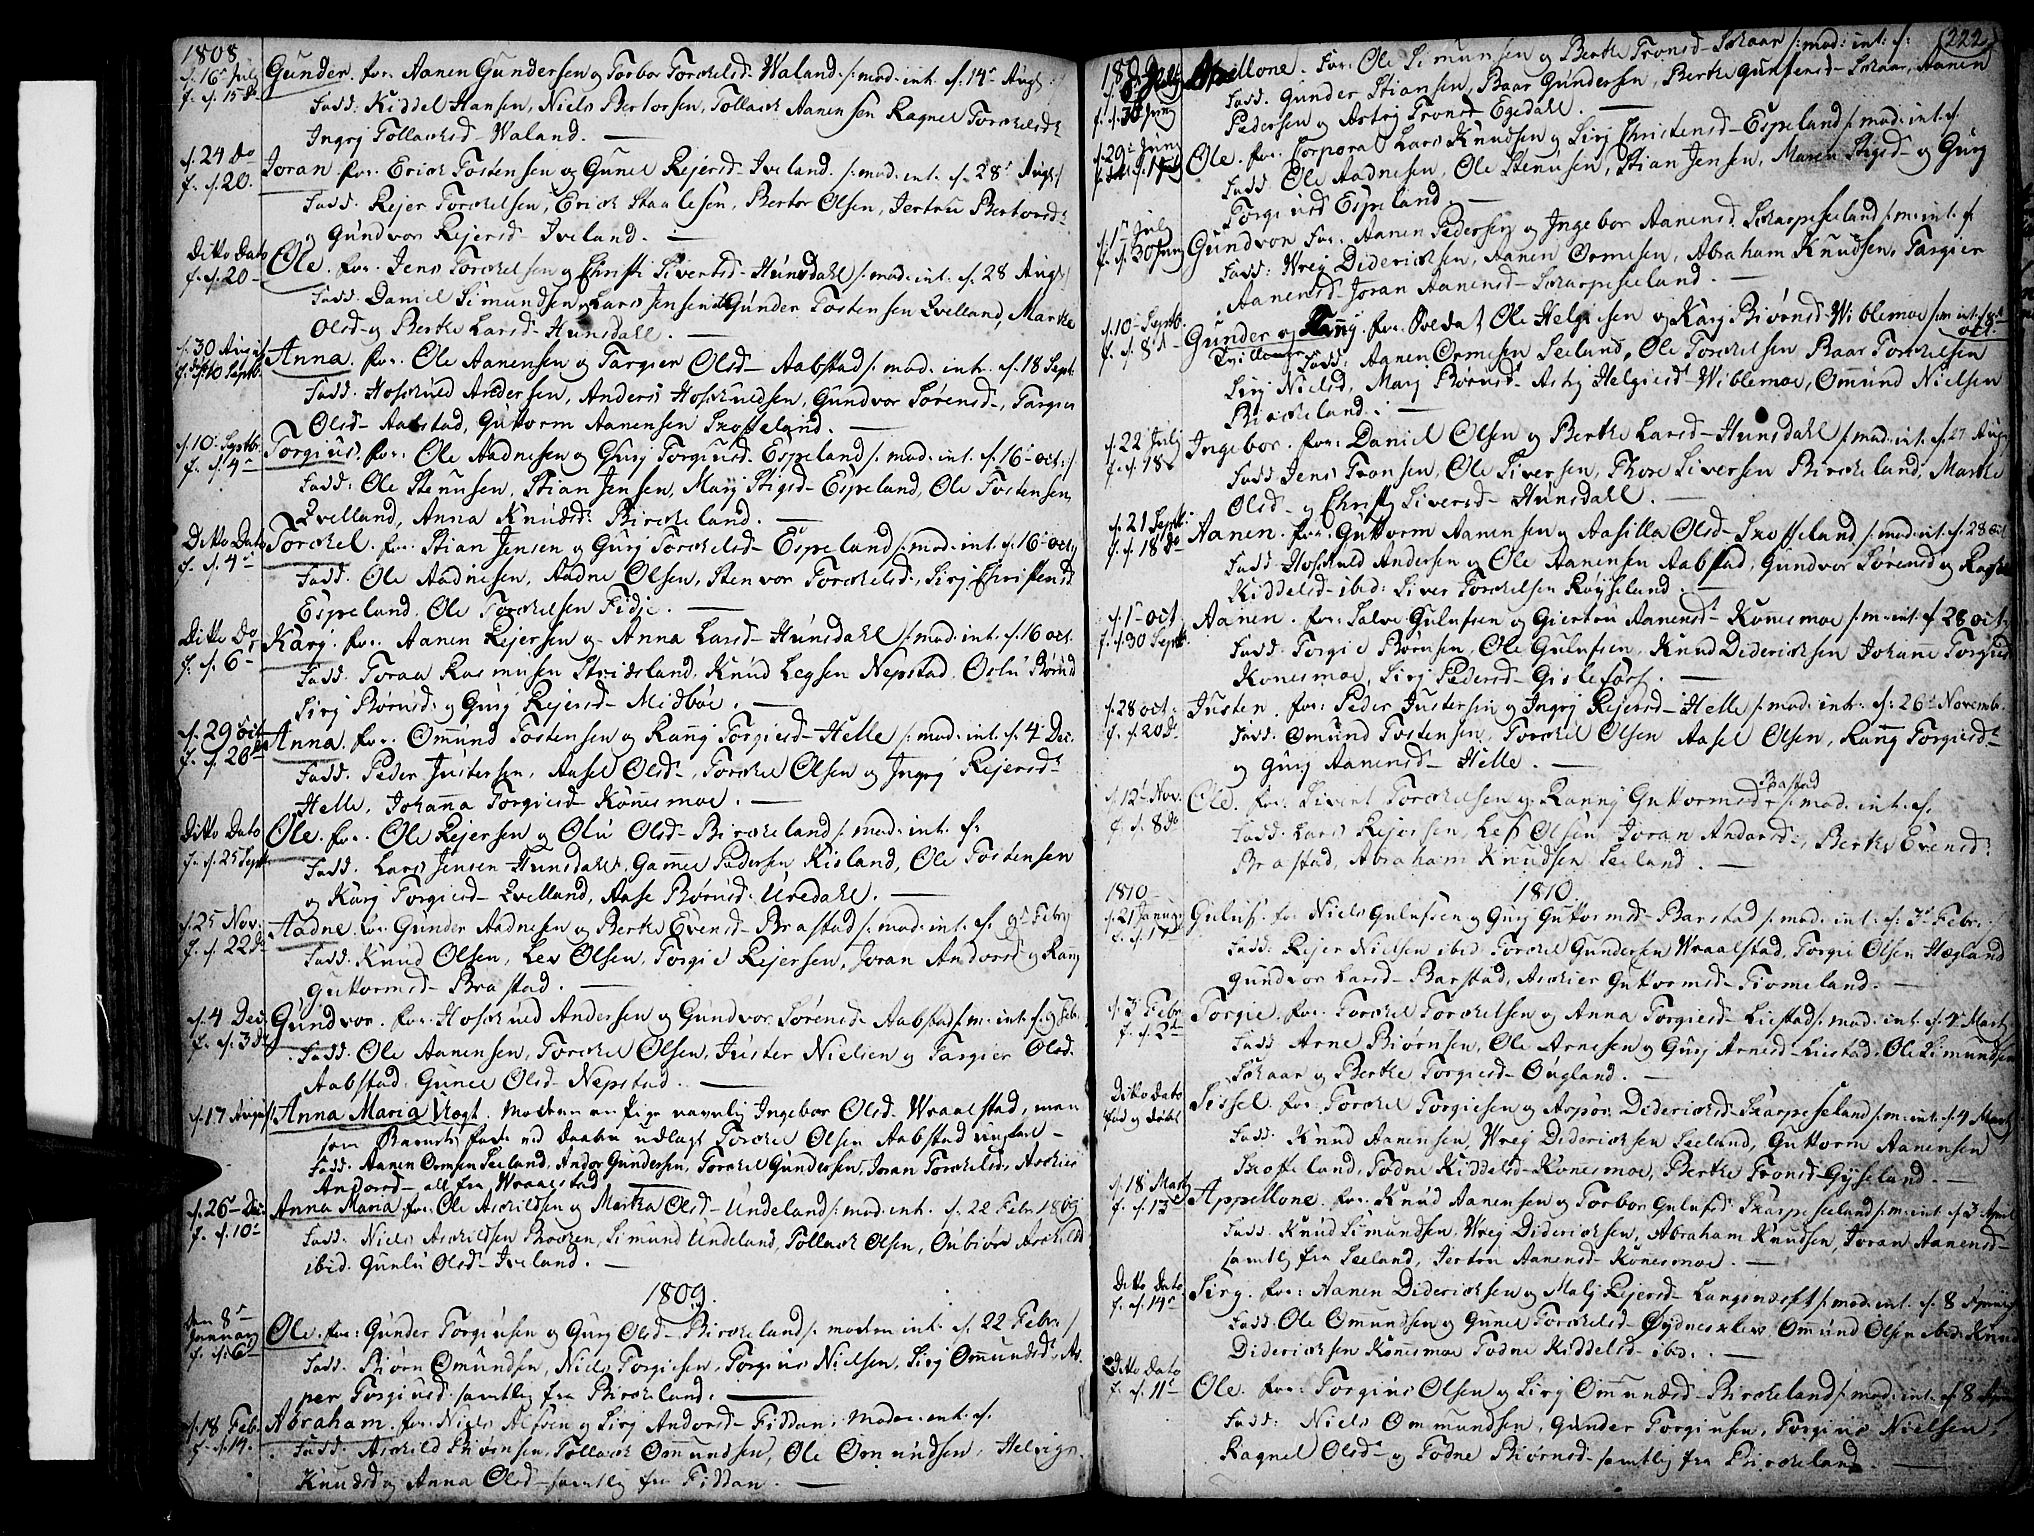 1808
d. 16 Julj Gunder. for. Aanen Gundersen og Torbor Torkelsd. Waland /: mod: int. d. 14 Augs :/
f. d. 15 do Fadd. Kiddel Hansen, Niels Bertorsen, Tollack Aanensen Ragnel Torkelsd.
Ingrj Tollacksd. Waland. —
d. 24 Do Joran for. Erick Tostensen og Gunel Rejersd. Iveland /: mod. int. d. 28 Augs :/
f. d. 20. Fadd. Rejer Torkelsen, Erick Staalesen, Bertor Olsen, Jertru Bertorsd.
og Gundvor Rejersd. Iveland. —
Ditto Dato Ole. for. Jens Torkelsen og Christi Sivertsd. Hunsdahl /: mod: int. d. 28 Augs :/
f. d. 20 Fadd. Daniel Simundsen og Lars Jensen Gunder Tostensen Qvelland, Marthe
Olsd. og Berthe Larsd. Hunsdahl. —
d. 30 August Anna. for. Ole Aanensen og Targier Olsd. Aabstad /: mod. int. d. 18 Sept:
Fadd. Hoskuld Andersen, Anders Hoskuldsen, Gundvor Sørensd. Targier
Olsd. Aabstad, Guttorm Aanensen Skoffeland. —
d. 10 Septbr Torgius. for. Ole Aadnesen og Gurj Torgiusd. Espeland /: mod. int. d. 16 oct :/
f. d. 4 Fadd: Ole Stenusen, Stian Jensen, Marj Stigsd. Espeland, Ole Tostensen
Qvelland, Anna Knudsd. Birckeland. —
Ditto Dato Torckel. for. Stian Jensen og Gurj Torckelsd. Espeland /: mod: int. d. 16 oct :/
f. d. 4 Fadd. Ole Aadnesen, Aadne Olsen, Stenvor Torckelsd., Sirj Christensd.
Espeland. Ole Torckelsen Fidje. —
Ditto Do Karj. for. Aanen Rejersen og Anna Larsd. Hunsdahl /: mod. int. d. 16 oct.
f. d. 6 Fadd. Toraa Rasmusen Stridsland. Knud Legsen Nepstad. Oslu Børnsd.
Sirj Børnsd. og Gurj Rejersd. Midbøe. —
d. 29 Oct Anna. for. Omund Tostensen og Rang Torgiesd. Helle /: mod. int. d. 4 Dec.
f. d. 26 Fadd. Peder Justersen, Aasel Olsd., Torckel Olsen og Ingrj Rejersd.
Helle, Johanna Torgiesd. Konnesmoe. —
Ditto Dato Ole. for. Ole Rejersen og Olu Olsd. Birckeland /: mod: int. d.
f. d. 25 Sept. Fadd. Lars Jensen Hunsdahl. Gamel Pedersen Kisland, Ole Tostensen
og Karj Torgiesd. Qvelland, Aase Børnsd. Uredahl. —
d. 25 Nov: Aadne. for Gunder Aadnesen og Berthe Evensd. Brastad /: mod. int. d. 9 Febr
f. d. 22 do Fadd. Knud Olsen, Lev Olsen, Torgie Rejersen, Joran Andorsd. og Rang
Guttormsd. Brastad. —
d. 4 Dec Gundvor. for. Hoskuld Andersen og Gundvor Sørensd. Aabstad /: m. int. d. 9 Feb.
f. d. 3 do Fadd. Ole Aanensen, Torckel Olsen, Juster Nielsen og Targier Olsd.
Aabstad. Gunel Olsd. Nepstad. —
d. 17 August Anna Maria Vogt. Moderen en Pige navnlig Ingebor Olsd. Wraalstad, men
som Barnets fader ved Daaben udlagt Torckel Olsen Aabstad ungkarl —
Fadd. Aanen Ormsen Seeland, Andor Gundersen, Torckel Gundersen, Joran Torckelsd., Asckier
Andorsd. all fra Wraalstad
d. 26 Dec Anna Maria. for. Ole Asckildsen og Martha Olsd. Undeland /: mod. int. d. 22 Febr. 1809
f. d. 10 Fadd. Niels Asckildsen Skocken, Simund Undeland, Tollack Olsen, Oubiør Asckildsd.
ibid. Gunlu Olsd. Iveland. —
1809.
den 8 Januarj Ole. for: Gunder Torgiusen og Gurj Olsd. Birckeland /: modren int. d. 22 Febr :/
f. d. 6 Fadd. Biørn Omundsen, Niels Torgiesen, Torgius Nielsen, Sirj Ommundsd. As
per Torgiusd. samtlig fra Birckeland. —
d. 18 Febr. Abraham. for. Niels Alfsen og Sirj Andorsd. Fiddan: Moder. int. d.
f. d. 14. Fadd. Asckild Biørnsen, Tollack Omundsen, Ole Omundsen, Helvig
Knudsd. og Anna Olsd. samtlig fra Fiddan. —
222
Apellone. For: Ole Simunsen og Berthe Tronsd. Skaar /: mod: int: d:
f. d. 30 Junj Fadd. Gunder Stiansen, Baar Gundersen, Berthe Gundersd. Skaar, Aanen
Pedersen og Astrj Tronsd. Egedahl. —
d. 29 Junj Ole. for. Corporal Lars Knudsen og Sirj Christensd. Espeland /: mod: int. d.
Fadd. Ole Aadnesen, Ole Stenusen, Stian Jensen, Maren Stigsd. og Gurj
Torgiusd. Espeland. —
d. 1 Julj Gundvor for. Aanen Pedersen og Ingebor Aanensd. Skarpeseland /: m: int. d.
f. d. 30 Junj Fadd: Wrej Didericksen, Aanen Ormsen, Abraham Knudsen, Targier
Aanensd. Joran Aanensd. Skarpeseland. —
d. 10 Septb. Gunder og Rang for. Soldat Ole Helgesen og Karj Biørnsd. Wiblemoe /: m int. d. oct.
f. d. 8 Tvillinger Fadd: Aanen Ormsen Seeland, Ole Torckelsen Baar Torckelsen
Sirj Nielsd., Marj Børnsd. Astrj Helgiesd. Wiblemoe, Omund Nielsen
Birckeland. —
d. 22 Julj Ingebor. for: Daniel Olsen og Berthe Larsd. Hunsdahl /: mod: int. d. 27 Aug
f. d. 18 Fadd. Jens Tronsen, Ole Siversen, Thore Siversen Birckeland, Marthe
Olsd. og Christj Siversd. Hunsdahl. —
d. 21 Sept. Aanen. for. Guttorm Aanensen og Aasilla Olsd. Skoffeland /: mod: int. d. 28 oct
f. d. 18 do Fadd. Hoskuld Andersen og Ole Aanensen Aabstad, Gundvor Sørensd og Ragnel
Kiddelsd. ibid: Siver Torckelsen Røyseland. —
d. 1 Oct Aanen. for: Salve Gulufsen og Giertru Aanensd. Konnesmoe /: m: int. d. 28 oct.
f. d. 30 Sept. Fadd. Torgie Børnsen, Ole Gulufsen, Knud Didericksen Johane Torgiusd.
Konesmoe, Sirj Pedersd. Gislefors. —
d. 28 oct. Justen. for: Peder Justersen og Ingrj Rejersd. Helle /: mod: int: d. 26 Novembr.
f. d. 20 do Fadd. Omund Tostensen, Torckel Olsen Aasel Olsen, Rang Torgiesd.
og Gurj Aanensd. Helle. —
d. 12 Nov. Ole. for: Sivert Torckelsen og Ranny Guttormsd. Brastad /: mod: int. d.
f. d. 8 do Fadd: Lars Rejersen, Lef Olsen, Joran Andorsd., Berthe Evensd.
Brastad, Abraham Knudsen Seeland. —
1810 1810
d. 21 Januarj Guluf. for Niels Gulufsen og Gurj Guttormsd. Barstad /: mod: int. d. 3 Febr:
f. d. 17 Fadd. Rejer Nielsen ibid: Torckel Gundersen Wraalstad, Torgie Olsen Hægland
Gundvor Larsd. Barstad, Asckier Guttormsd. Tiomeland. —
d. 3 Febr Torgie. for. Torckel Torckelsen og Anna Torgiesd. Liestad /: mod. int. d. 4 Martj
f. d. 2 Fadd Arne Biørnsen, Ole Arnesen og Gurj Arnesd. Liestad, Ole Simundsen
Skaar og Berthe Torgiesd. Øugland. —
Ditto Dato Sissel. for. Torckel Torgiesen og Aspør Didericksd. Skarpeseland /: m: int. d. 4 Martj
Fadd. Knud Aanensen, Wrej Didericksen Seeland, Guttorm Aanensen
Skoffeland. Todne Kiddelsd. Konesmoe, Berthe Tronsd. Gyseland. —
d. 18 Martj Appellone. for. Knud Aanensen og Torbor Gulufsd. Skarpeseland /: m: int. d. 3 April
f. d. 13 Fadd. Knud Simundsen, Wrej Didericksen, Abraham Knudsen, Joran Aanensd.
samtlig fra Seeland, Jertru Aanensd. Konesmoe. —
Ditto Dato Sirj. for: Aanen Didericksen og Malj Rejersd. Langenæs /: mod: int. d. 8 Aprilis
f. d. 14 Fadd. Ole Omundsen og Gunel Torckelsd. Øydnesklev, Ommund Olsen ibid. Knud
Didericksen Konesmoe Todne Kiddelsd. ibid. —
Ditto Dato Ole. for: Torgius Olsen og Sirj Ommundsd. Birckeland /: mod: int. d. 8 Apr
f. d. 11 Fadd: Niels Ommundsen, Gunder Torgiusen, Torgius Nielsen,
Ragnel Olsd. og Todne Biørnsd. samtlig fra Birckeland. —